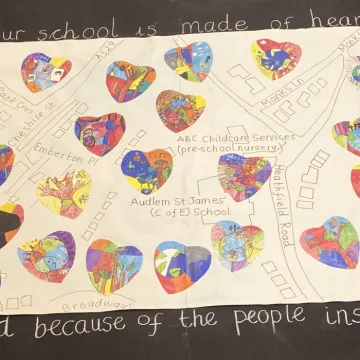 ur school is made of hear
A529
Monks Ln
Cheshire St
Emberton Pl
ABC Childcare Services
(pre-school nursery
Heathfield Road
Audlem St James'
(C of E) School
Broadways
d because of the people ins